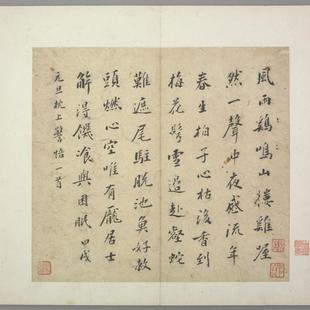 風雨鷄鳴山獲難躍
然一聲中夜感流年
春生柏子心枯後香到
梅花髩雪邊赴壑蛇
難遮尾駐脫池魚好救
頭燃心空唯有龐居士
解得饑飡與困眠 甲戌
元旦枕上警悟一首